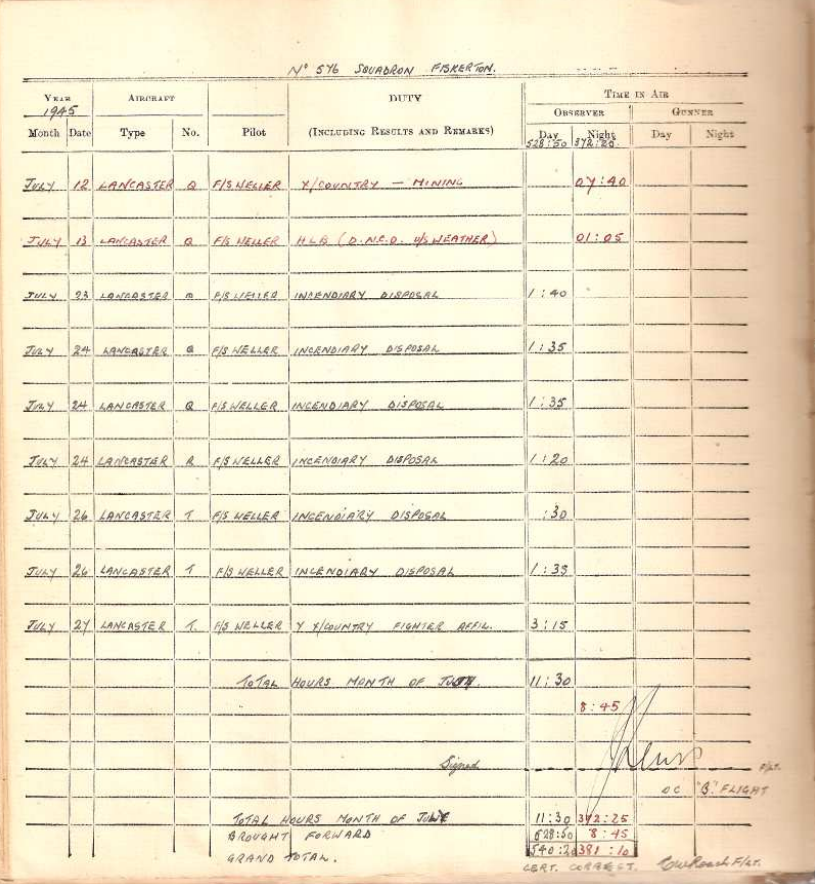 No 576 SQUADRON FISKERTON.
YEAR AIRCRAFT DUTY TIME IN AIR
1945 OBSERVER GUNNER
Month Date Type No. Pilot (INCLUDING RESULTS AND REMARKS) Day Night Day Night
528:50 372:20
JULY 12 LANCASTER Q F/S. WELLER X/COUNTRY — MINING 07:40
JULY 13 LANCASTER Q F/S WELLER H.L.B. (D.N.C.O. U/S WEATHER) 01:05
JULY 23 LANCASTER F/S WELLER INCENDIARY DISPOSAL 1:40
JULY 24 LANCASTER Q F/S WELLER INCENDIARY DISPOSAL 1:35
JULY 24 LANCASTER Q F/S WELLER INCENDIARY DISPOSAL 1:35
JULY 24 LANCASTER R F/S WELLER INCENDIARY DISPOSAL 1:20
JULY 26 LANCASTER T F/S WELLER INCENDIARY DISPOSAL :30
JULY 26 LANCASTER T F/S WELLER INCENDIARY DISPOSAL 1:35
JULY 27 LANCASTER T. F/S WELLER Y X/COUNTRY FIGHTER AFFIL. 3:15
TOTAL HOURS MONTH OF JULY. 11:30
8:45
Signed F/LT.
OC "B" FLIGHT
TOTAL HOURS MONTH OF JULY 11:30 372:25
BROUGHT FORWARD 528:50 8:45
GRAND TOTAL. 540:20 381:10
CERT. CORRECT. F/LT.